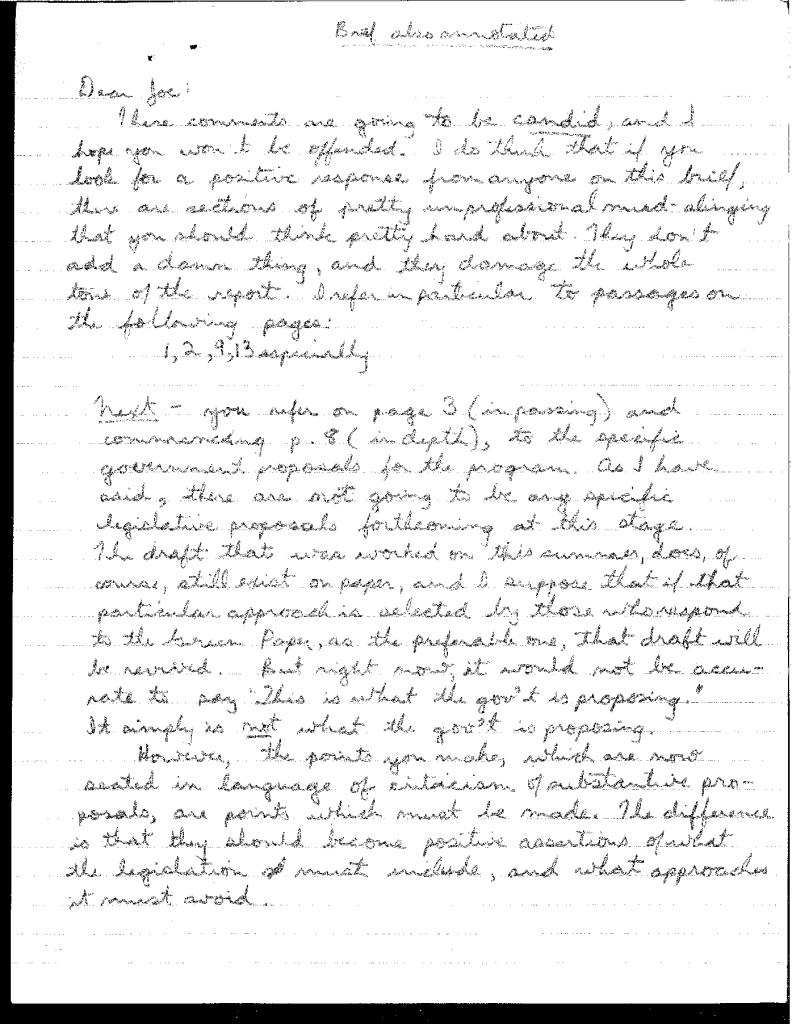 Brief also annotated
Dear Joe:
These comments are going to be candid, and I
hope you won't be offended. I do think that if you
look for a positive response from anyone on this brief,
there are sections of pretty unprofessional mud-slinging
that you should think pretty hard about. They don't
add a damn thing, and they damage the whole
tone of the report. I refer in particular to passages on
the following pages:
1, 2, 9, 13 especially
Next - you refer on page 3 (in passing) and
commencing p. 8 (in depth), to the specific
government proposals for the program. As I have
said, there are not going to be any specific
legislative proposals forthcoming at this stage.
The draft that was worked on this summer, does, of
course, still exist on paper, and I suppose that if that
particular approach is selected by those who respond
to the Green Paper, as the preferable one, that draft will
be revived. But right now, it would not be accu-
rate to say "This is what the gov't is proposing."
It simply is not what the gov't is proposing.
However, the points you make, which are now
seated in language of criticism of substantive pro-
posals, are points which must be made. The difference
is that they should become positive assertions of what
the legislation must include, and what approaches
it must avoid.